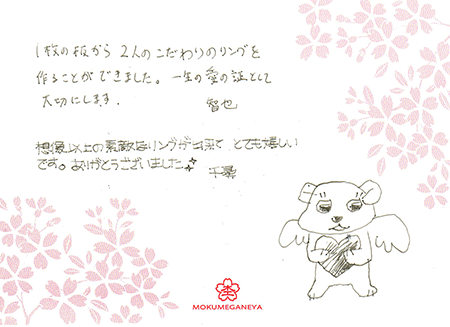 1枚の板から2人のこだわりのリングを
作ることができました。一生の愛の証として
大切にします.
智也
想像以上の素敵なリングが出来て とても嬉しい
です。ありがとうございました
千尋
MOKUMEGANEYA